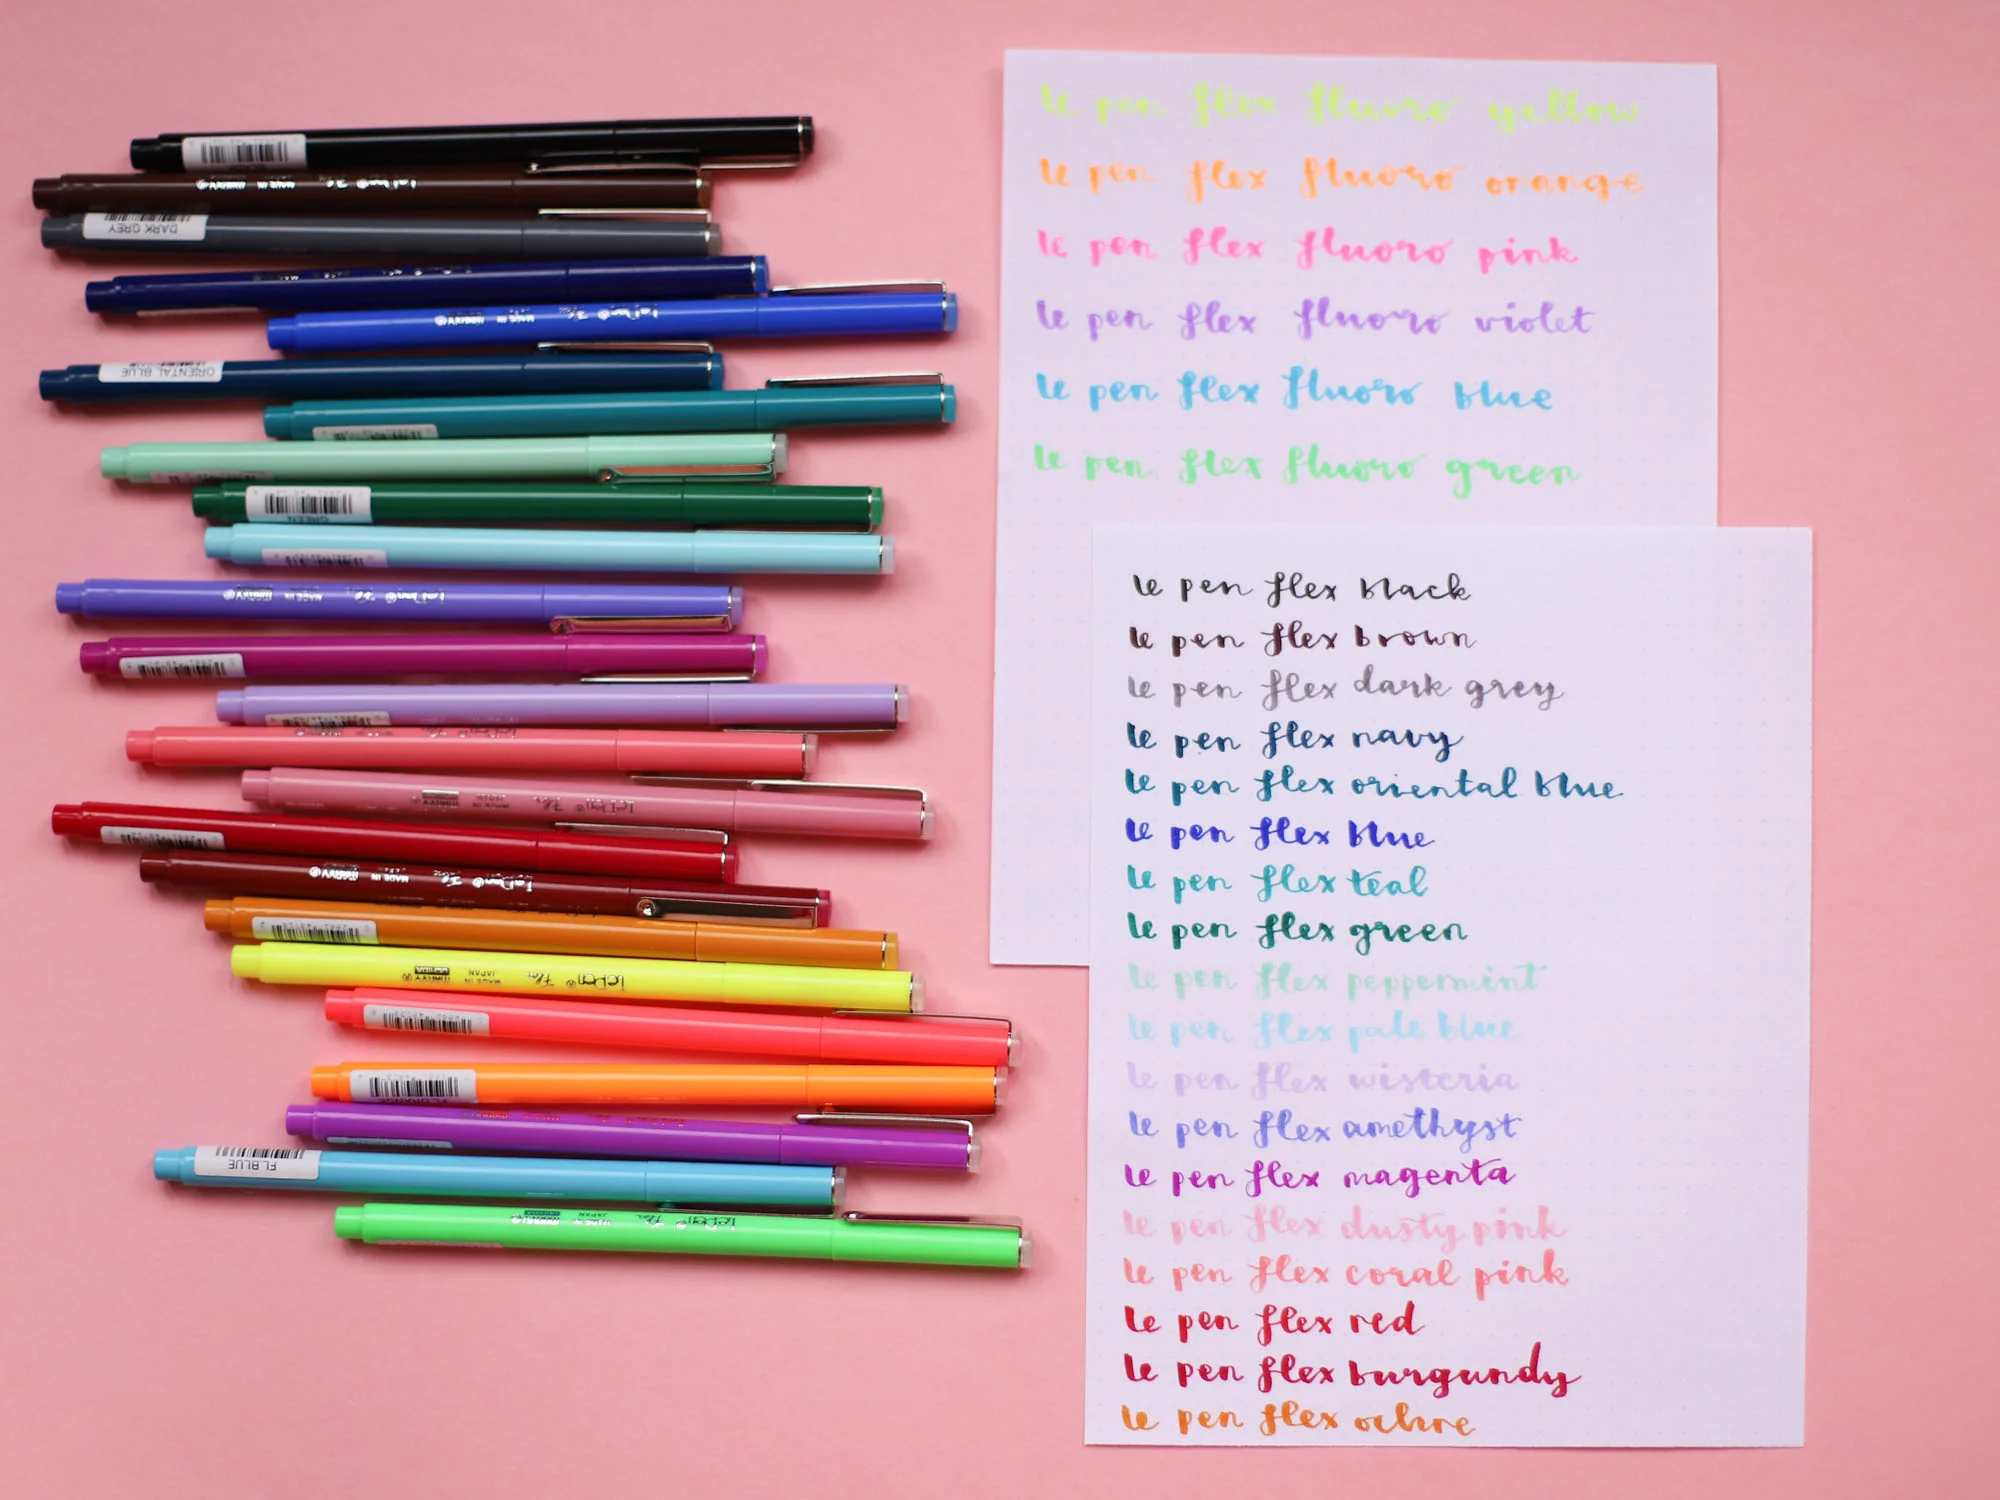 DARK GREY
MARVY MADE IN JAPAN LePen Flex
ORIENTAL BLUE
GREEN
MARVY MADE IN JAPAN LePen Flex
MARVY MADE IN JAPAN Flex LePen
MARVY UCHIDA MADE IN JAPAN Flex LePen
FL.ORANGE
FL.BLUE
MADE IN JAPAN Flex LePen
le pen flex fluoro yellow
le pen flex fluoro orange
le pen flex fluoro pink
le pen flex fluoro violet
le pen flex fluoro blue
le pen flex fluoro green
le pen flex black
le pen flex brown
le pen flex dark grey
le pen flex navy
le pen flex oriental blue
le pen flex blue
le pen flex teal
le pen flex green
le pen flex peppermint
le pen flex pale blue
le pen flex wisteria
le pen flex amethyst
le pen flex magenta
le pen flex dusty pink
le pen flex coral pink
le pen flex red
le pen flex burgundy
le pen flex ochre